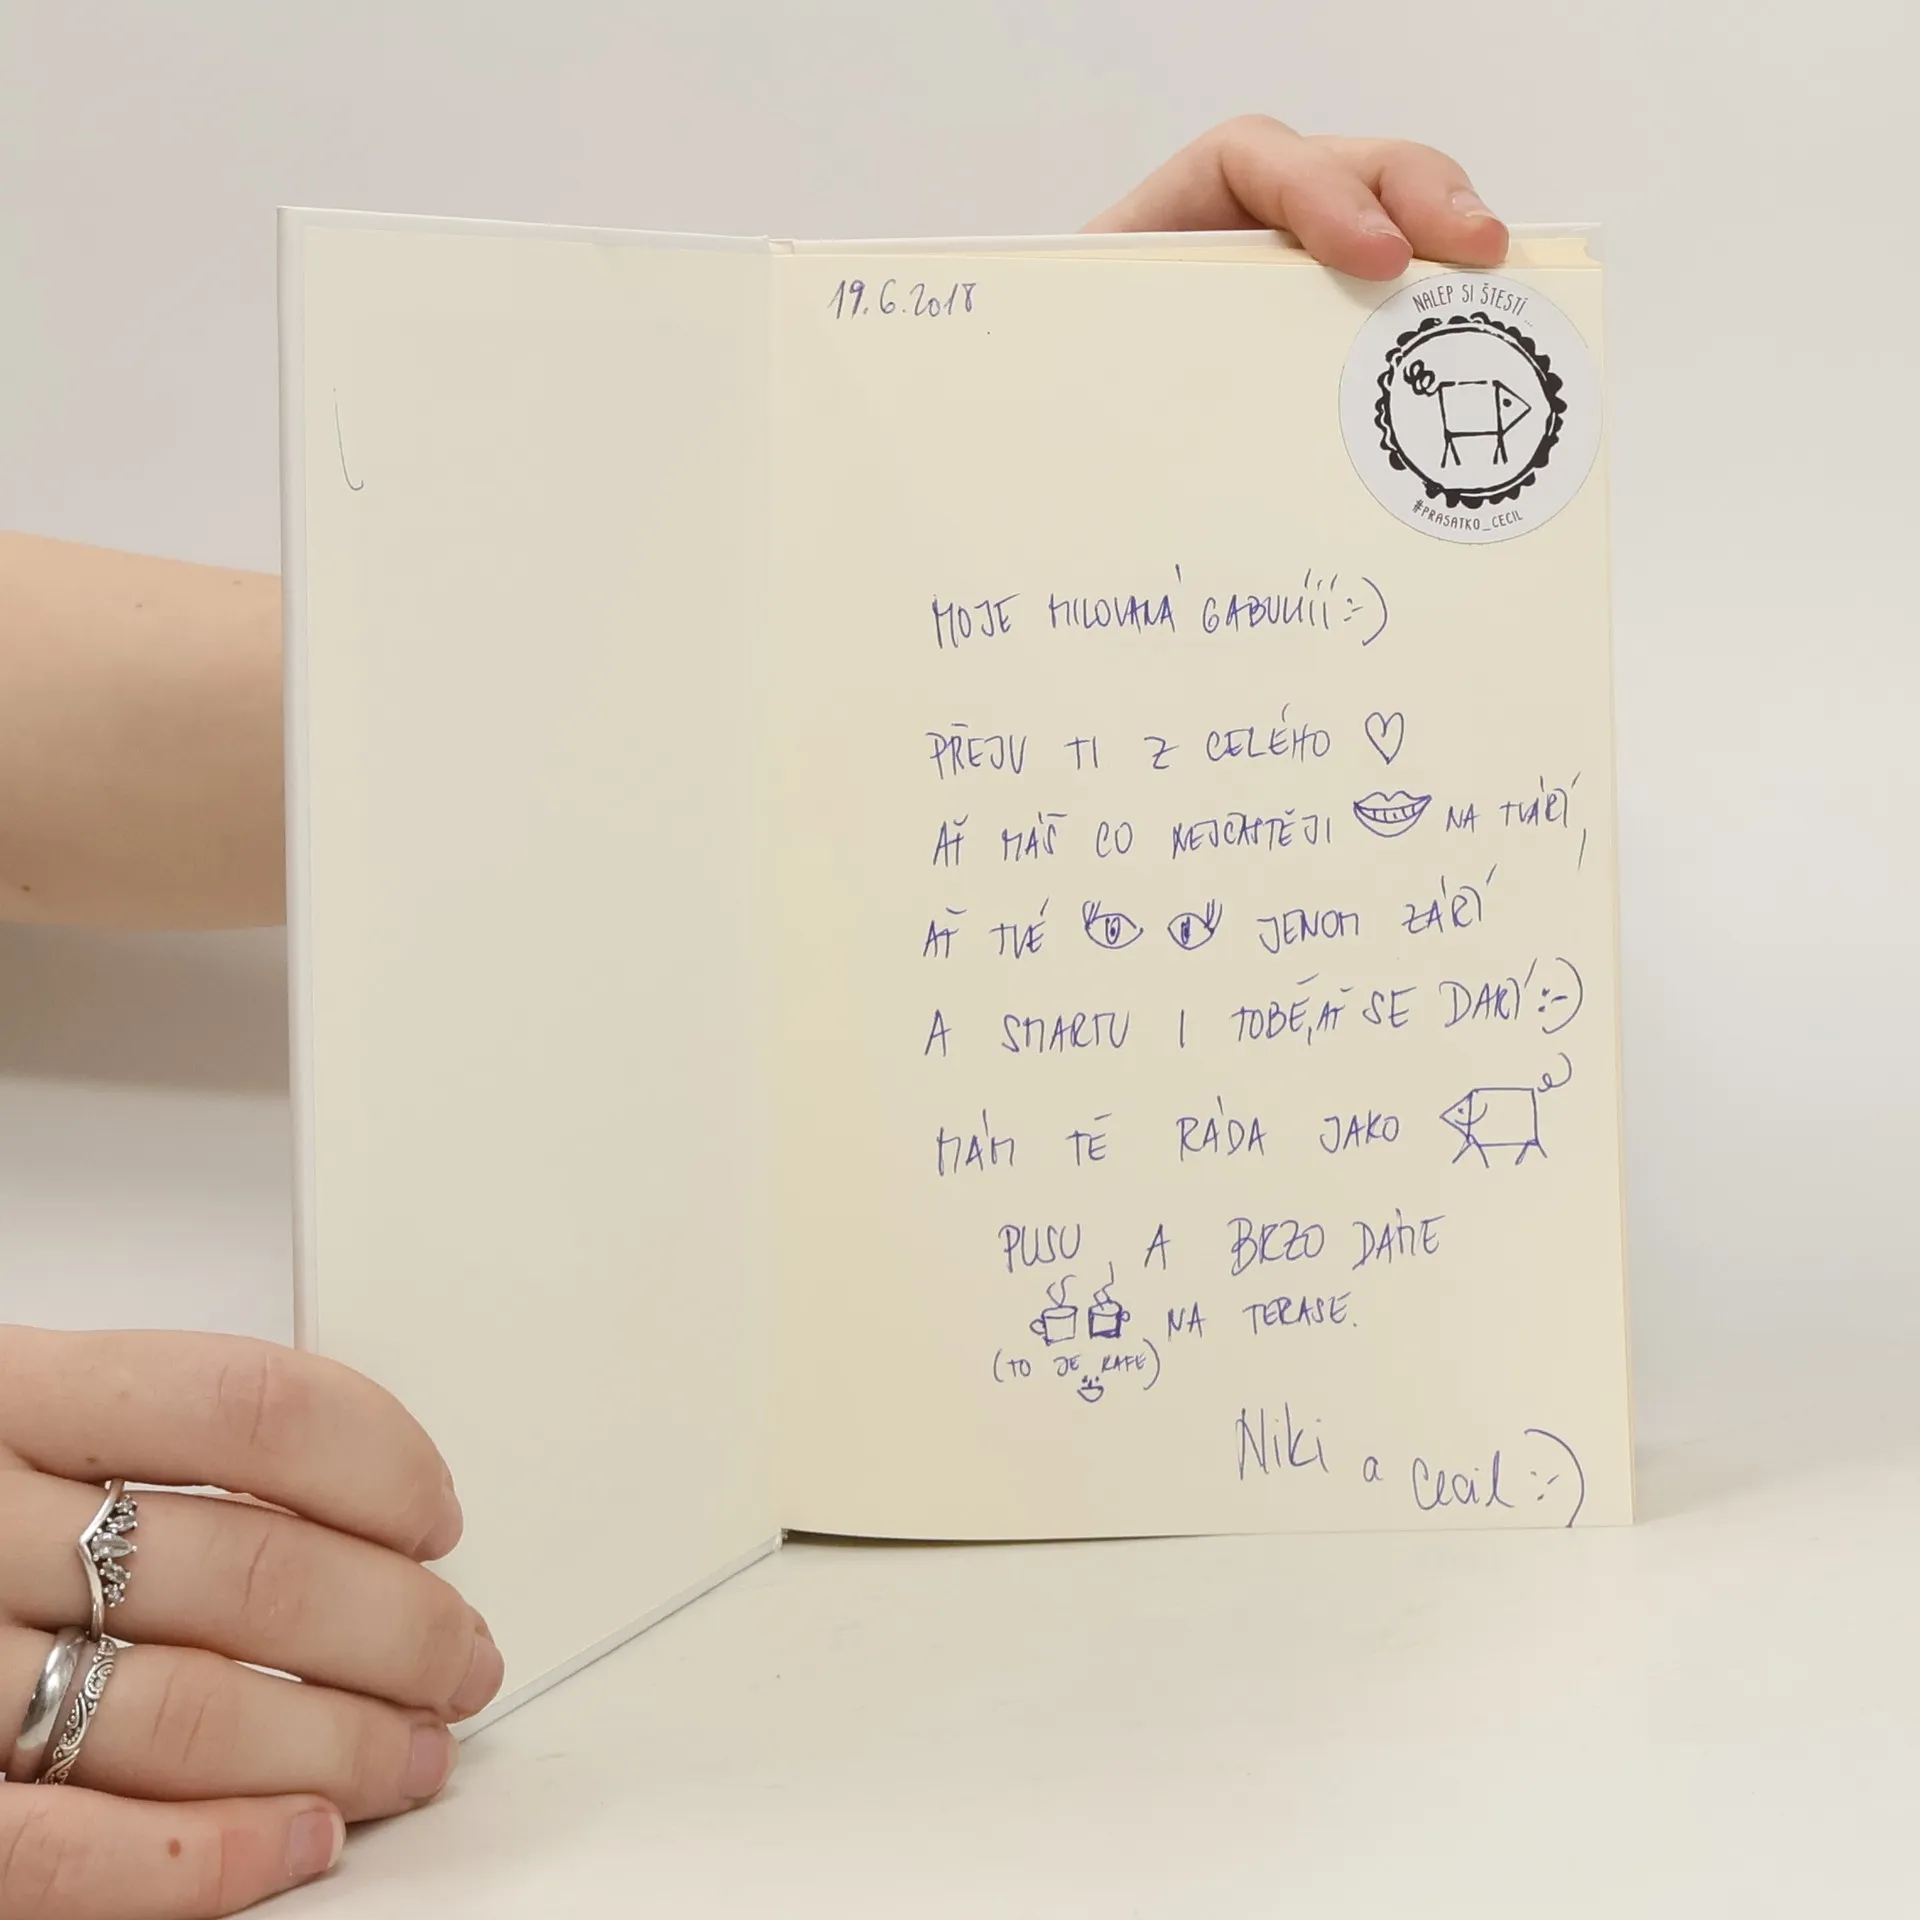 19.6.2018
NALEP SI ŠTESTÍ...
#PRASATKO_CECIL
MOJE MILOVANÁ :-)
PŘEJU TI Z CELÉHO ♡
AŤ MÁŠ CO NEJČASTĚJI NA TVÁŘÍ,
AŤ TVÉ JENOM ZÁŘÍ
A SMARTU I TOBĚ, AŤ SE DAŘÍ :-)
MÁM TĚ RÁDA JAKO
PUSU A BRZO DÁME
NA TERASE.
(TO JE KAFE)
Niki a Cecil :-)